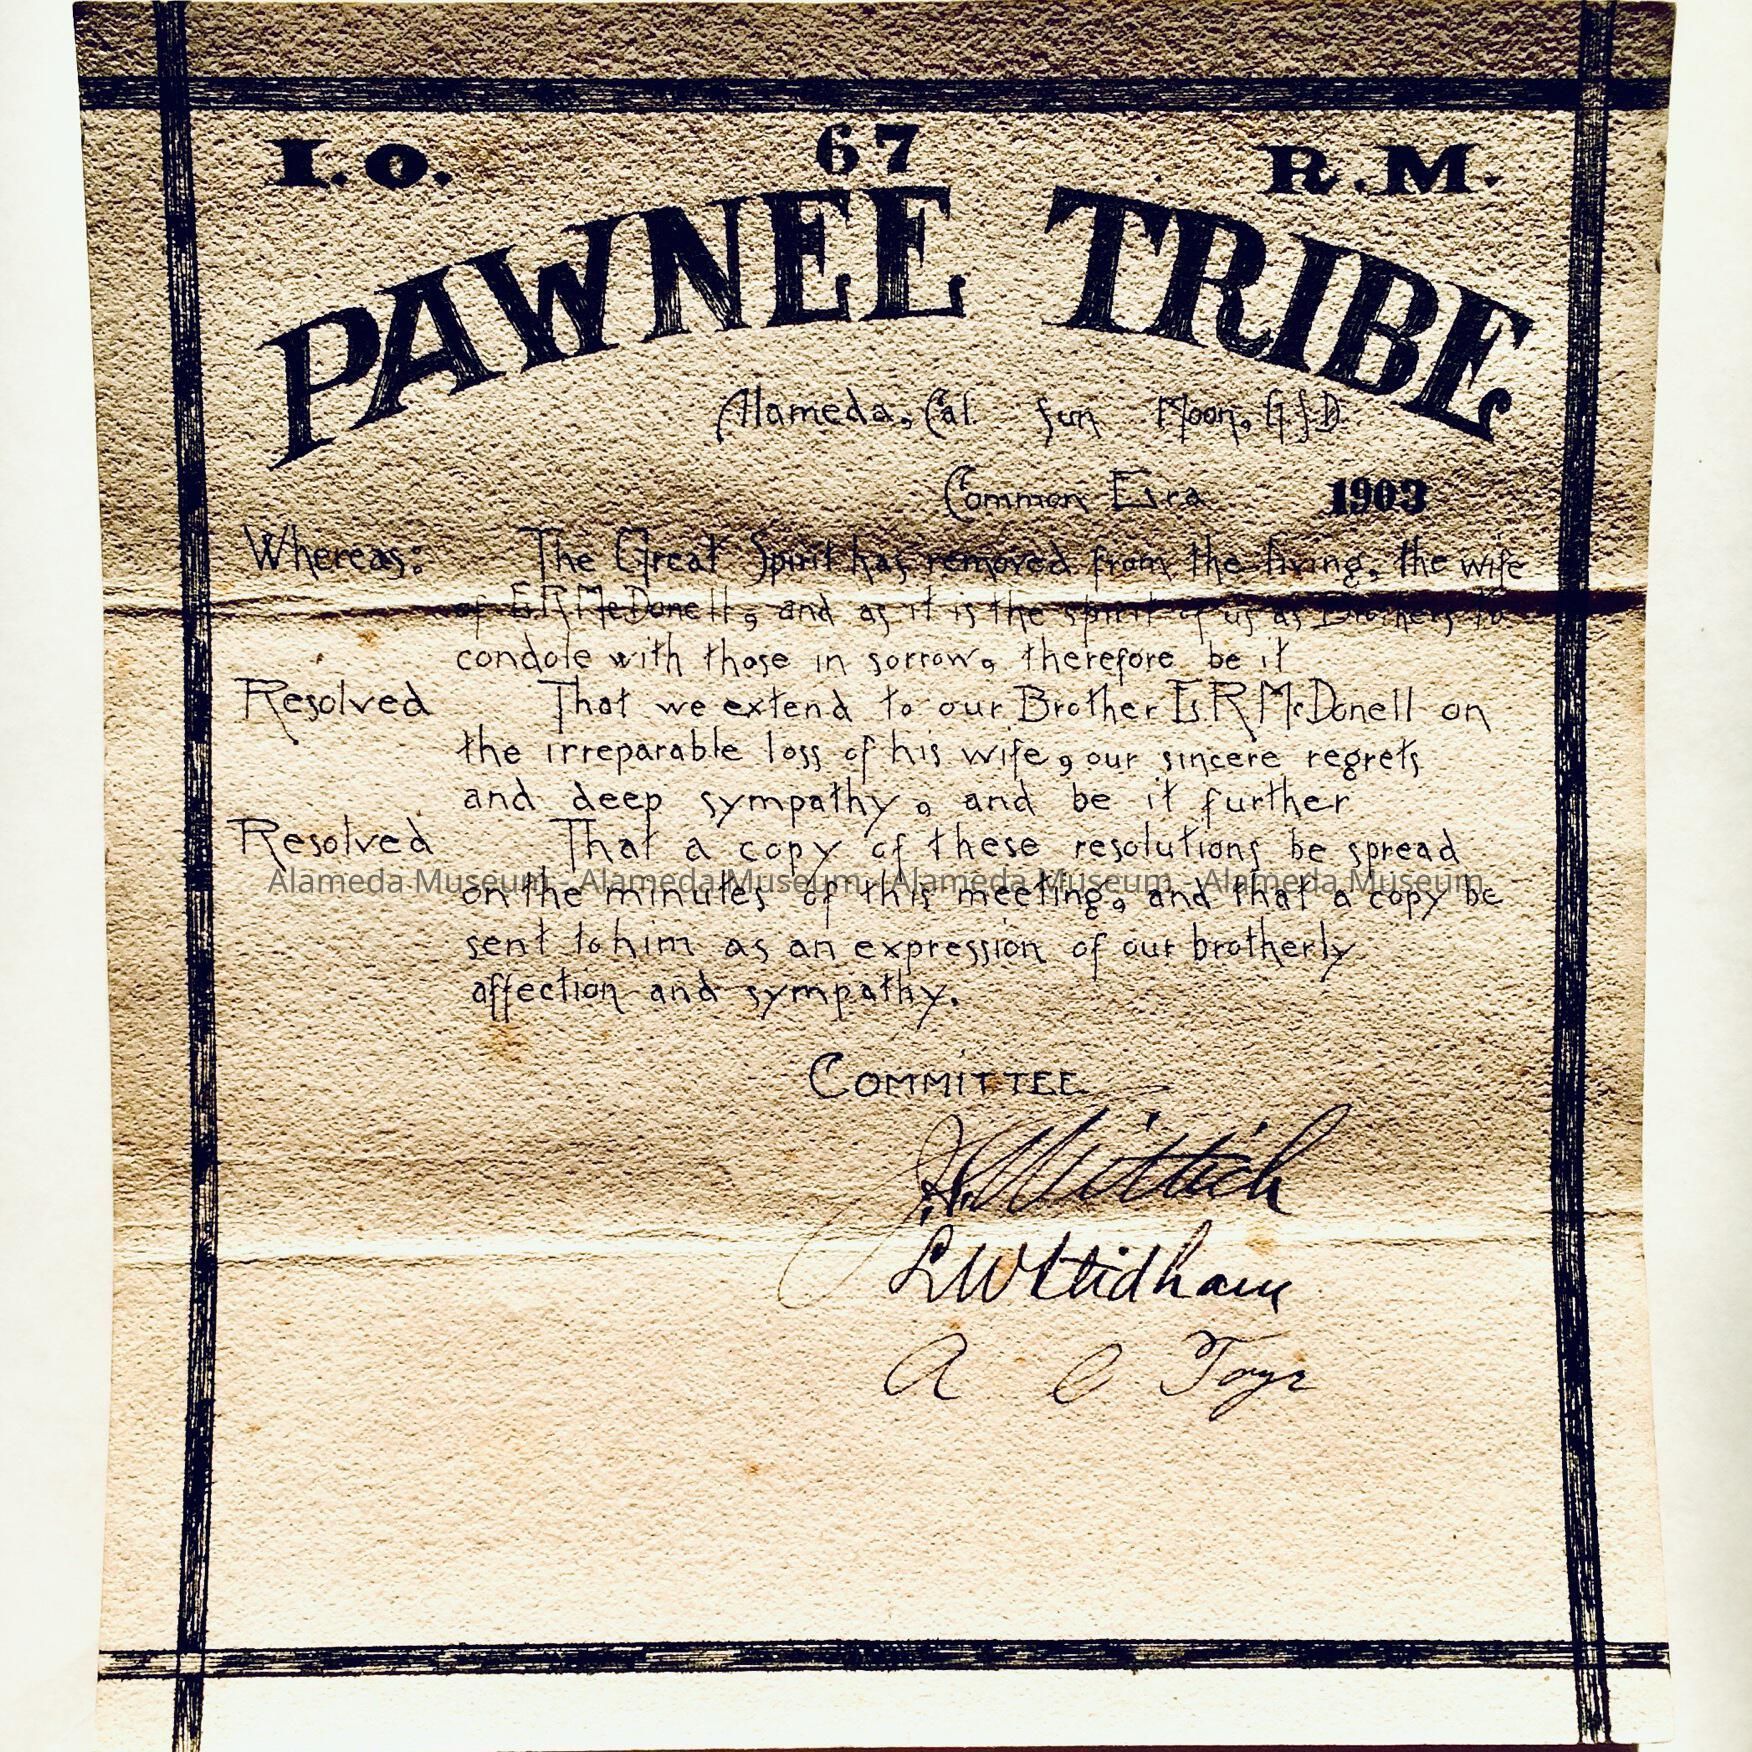 I.O. 67 R.M.
PAWNEE TRIBE
Alameda, Cal. Moon, G.S.D.
Common Era 1903
Whereas: The Great Spirit has removed from the living, the wife
of E.R McDonell, and as it is the spirit of us as Brothers to
condole with those in sorrow, therefore be it
Resolved That we extend to our Brother E.R McDonell on
the irreparable loss of his wife, our sincere regrets
and deep sympathy, and be it further
Resolved That a copy of these resolutions be spread
Alameda Museum - Alameda Museum - Alameda Museum - Alameda Museum
on the minutes of this meeting, and that a copy be
sent to him as an expression of our brotherly
affection and sympathy.
COMMITTEE
J.A. Wittich
L W Stidham
A C